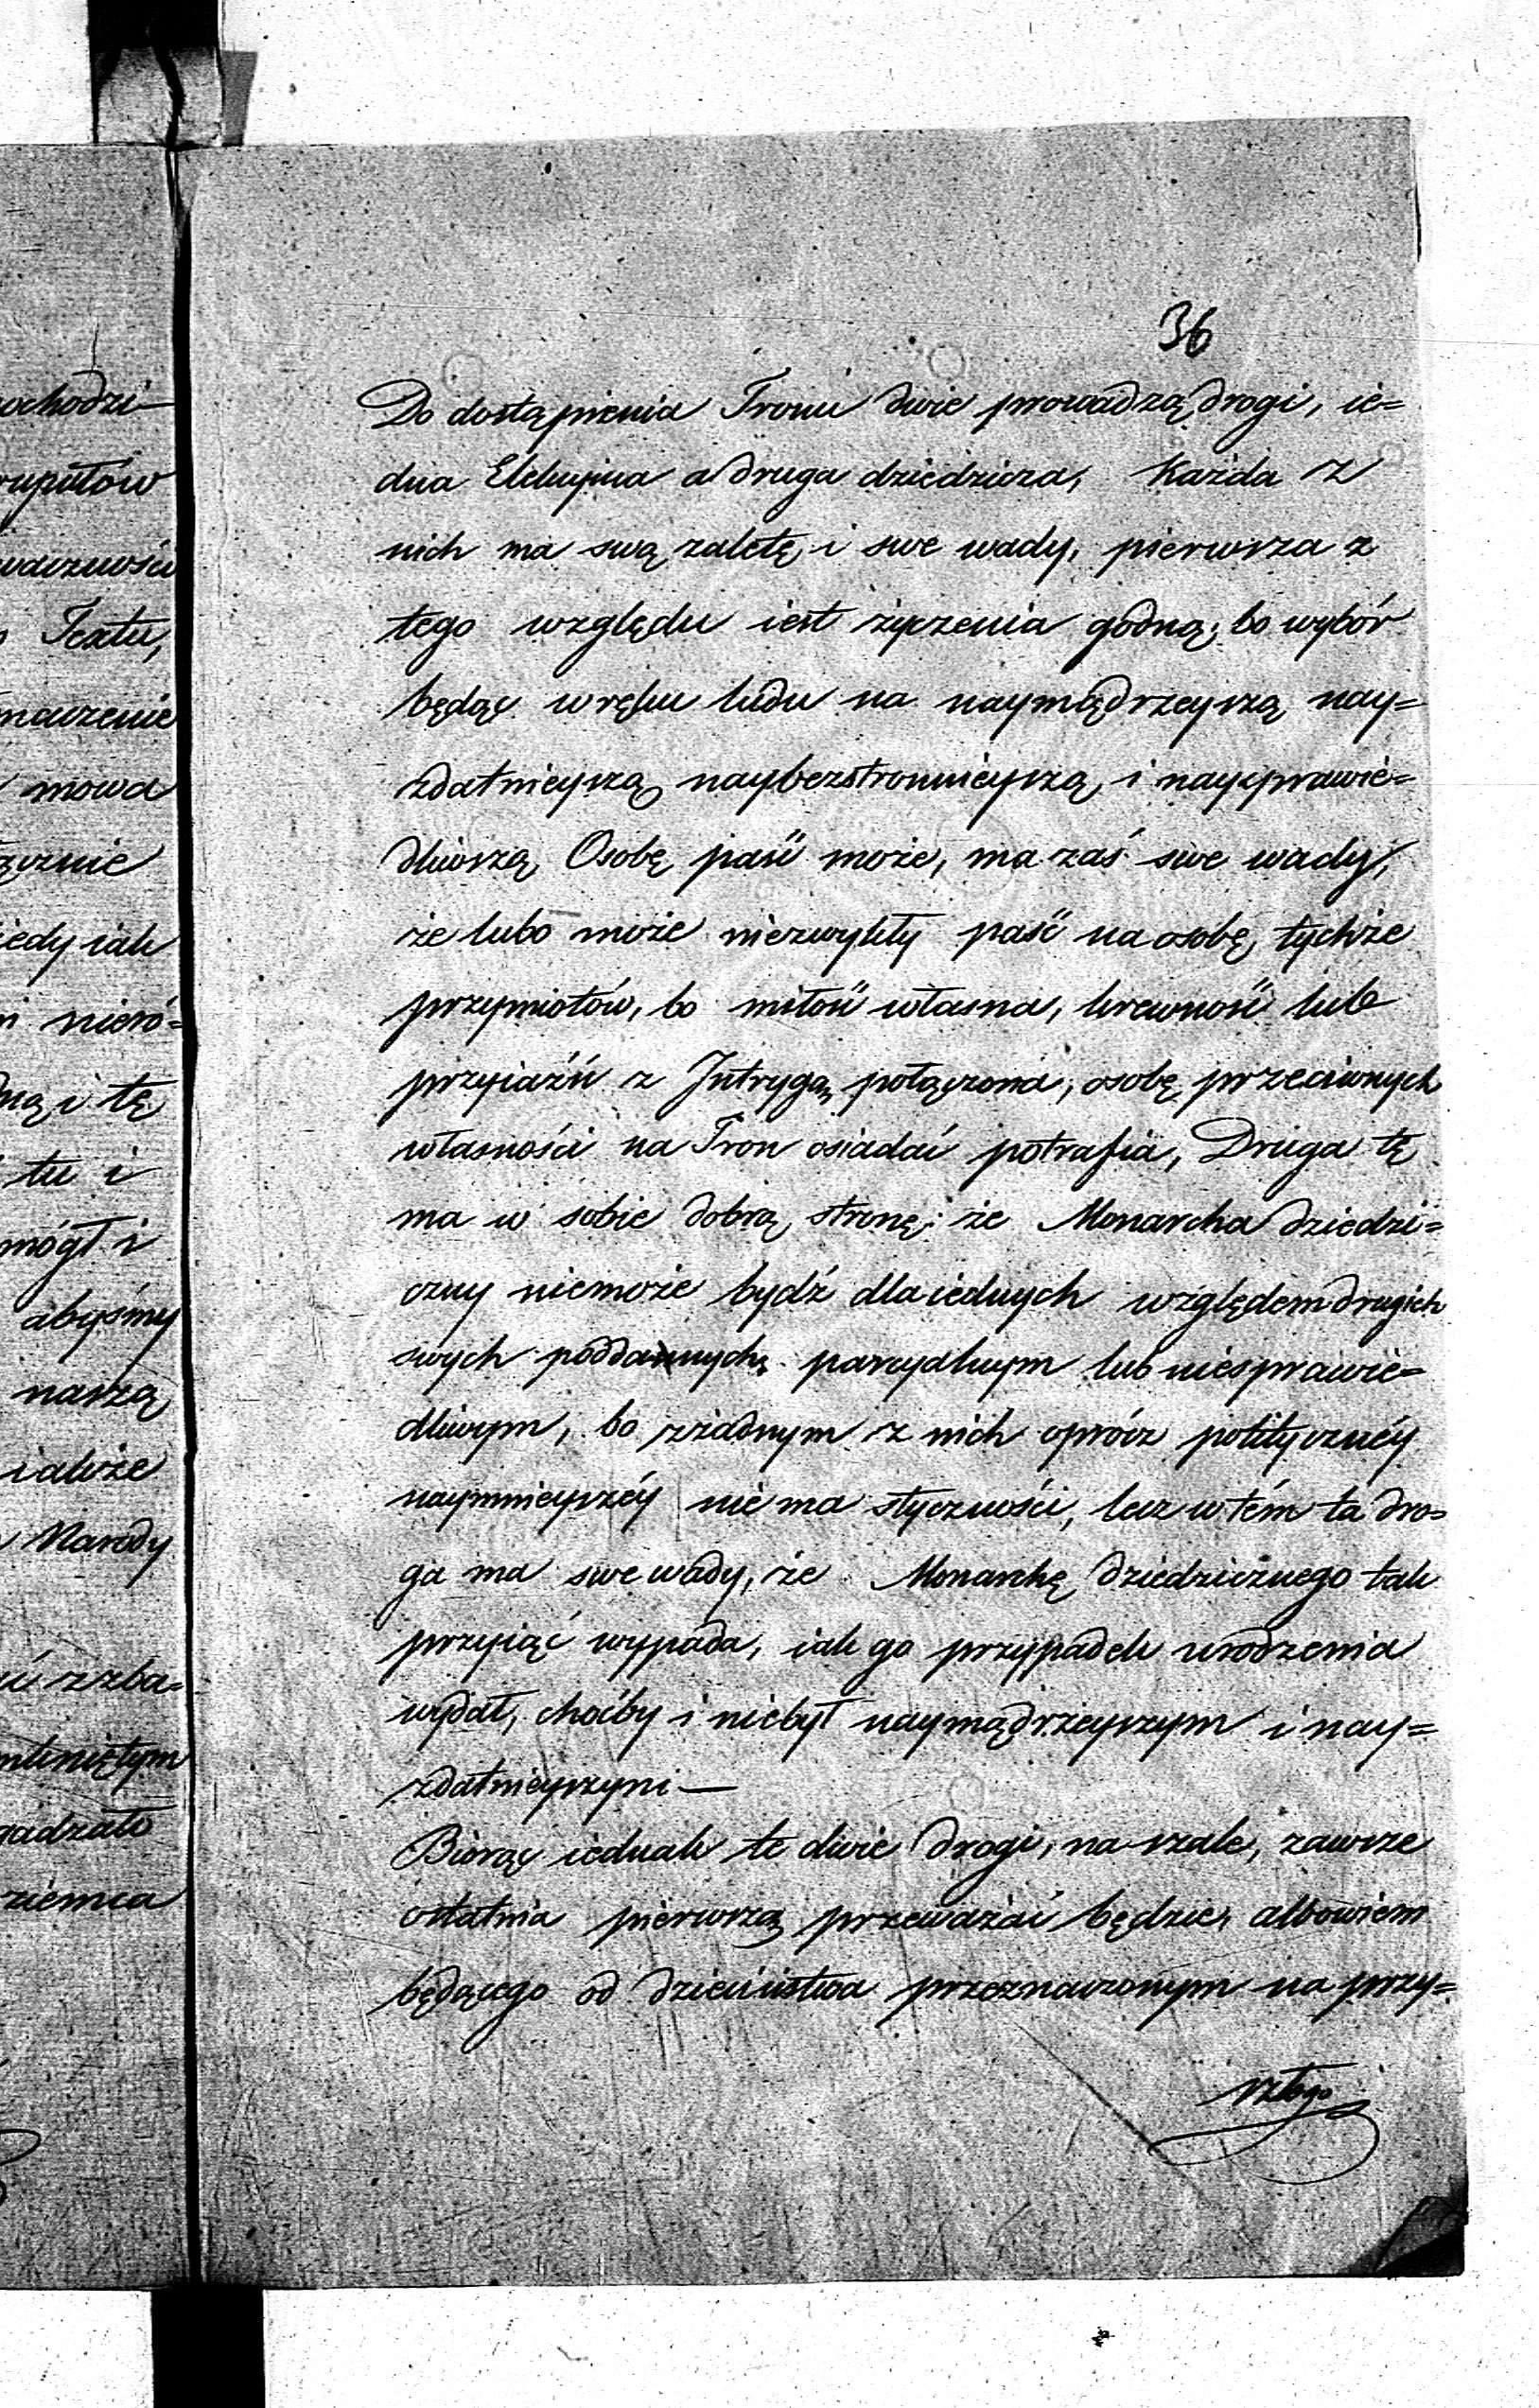 ochodzi-
rupułów
waczności
Textu,
maczenie
mowa
ącznie
iedy iak
nieró-
ną i tę
tu i
mógł i
abyśmy
naszą
iakże
Narody
zzba-
mkniętym
gadzało
ziemca
36
Do dostąpienia Tronu dwie prowadzą drogi, ie=
dna Elekcyina a druga dziedzicza, każda z
nich ma swą zaletę i swe wady, pierwsza z
tego względu iest życzenia godną; bo wybór
będąc w ręku ludu na naymądrzeyszą nay=
zdatnieyszą naybezstronnieyszą i naysprawie=
dliwszą Osobę paść może, ma zaś swe wady,
że lubo może niezwykły paść na osobę tychże
przymiotów, bo miłość własna, krewność lub
przyiaźń z Intrygą połączona, osobę przeciwnych
własności na Tron osiadać potrafia, Druga tę
ma w sobie dobrą stronę; że Monarcha dziedzi=
czny niemoże bydź dla iednych względem drugich
swych poddannych parcyalnym lub niesprawie=
dliwym, bo zżadnym z nich oprócz polityczney
naymnieyszéy nie ma styczności, lecz w tém ta dro=
ga ma swe wady, że Monarchę dziedzicznego tak
przyiąć wypada, iak go przypadek urodzenia
wydał, choćby i niebył naymądrzeyszym i nay=
zdatnieyszym —
Biorąc iednak te dwie drogi, na szale, zawsze
ostatnia pierwszą przeważać będzie, albowiem
będącego od dzieciństwa przeznaczonym na przy=
szłego